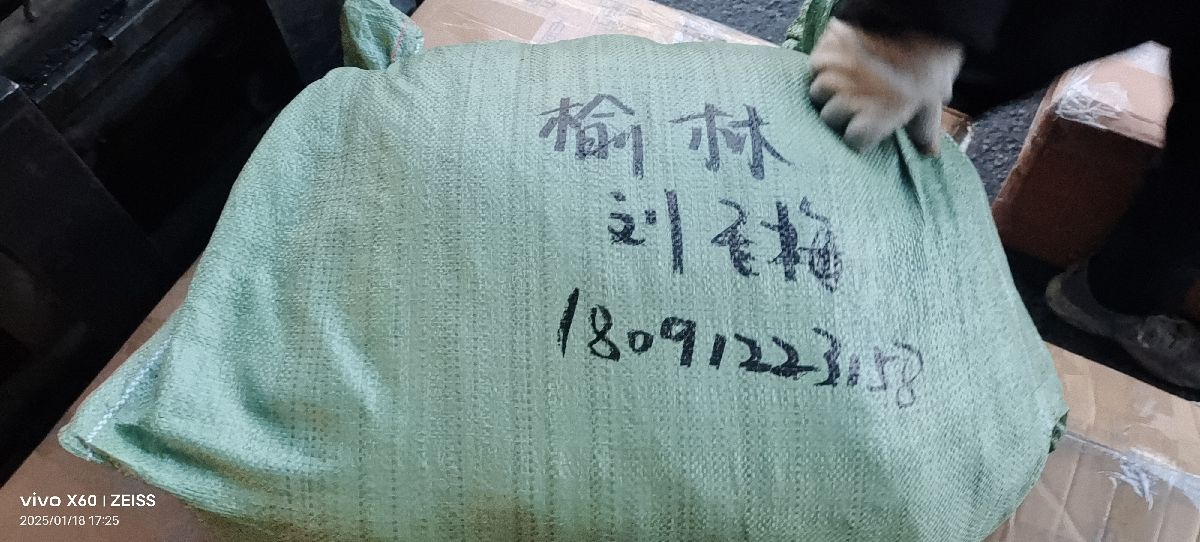 榆林
刘
18091223158
vivo X60 | ZEISS
2025/01/18 17:25